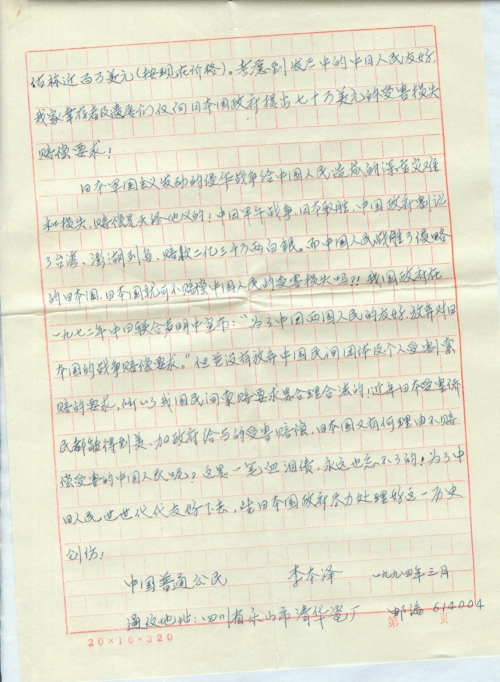 估标近百万美元(按现在价格)。考虑到战后中的中日人民友好
我家幸存者及遗属们仅向日本国政府提出七十万美元的受害损失
赔偿要求!
日本军国主义发动的侵华战争给中国人民造成的深重灾难
和损失,赔偿是天经地义的!中日甲午战争,日本战胜,中国政府割让
了台湾、澎湖列岛,赔款二亿三千万两白银。而中国人民战胜了侵略
的日本国,日本国就可不赔偿中国人民的受害损失吗?!我国政府在
一九七二年中日联合声明中宣布:“为了中日两国人民的友好,放弃对日
本国的战争赔偿要求。”但并没有放弃中国民间团体及个人受害索
赔的要求。所以我国民间索赔要求是合理合法的,近年日本受害侨
民都能得到美、加政府给与的受害赔偿,日本国又有何理由不赔
偿受害的中国人民呢?这是一笔血泪债,永远也忘不了的!为了中
日人民世世代代友好下去,望日本国政府尽力处理好这一历史
创伤!
中国普通公民 李本泽 一九九四年三月
通收地址:四川省乐山市清华瓷厂 邮编 614004
20×16=320 第 页